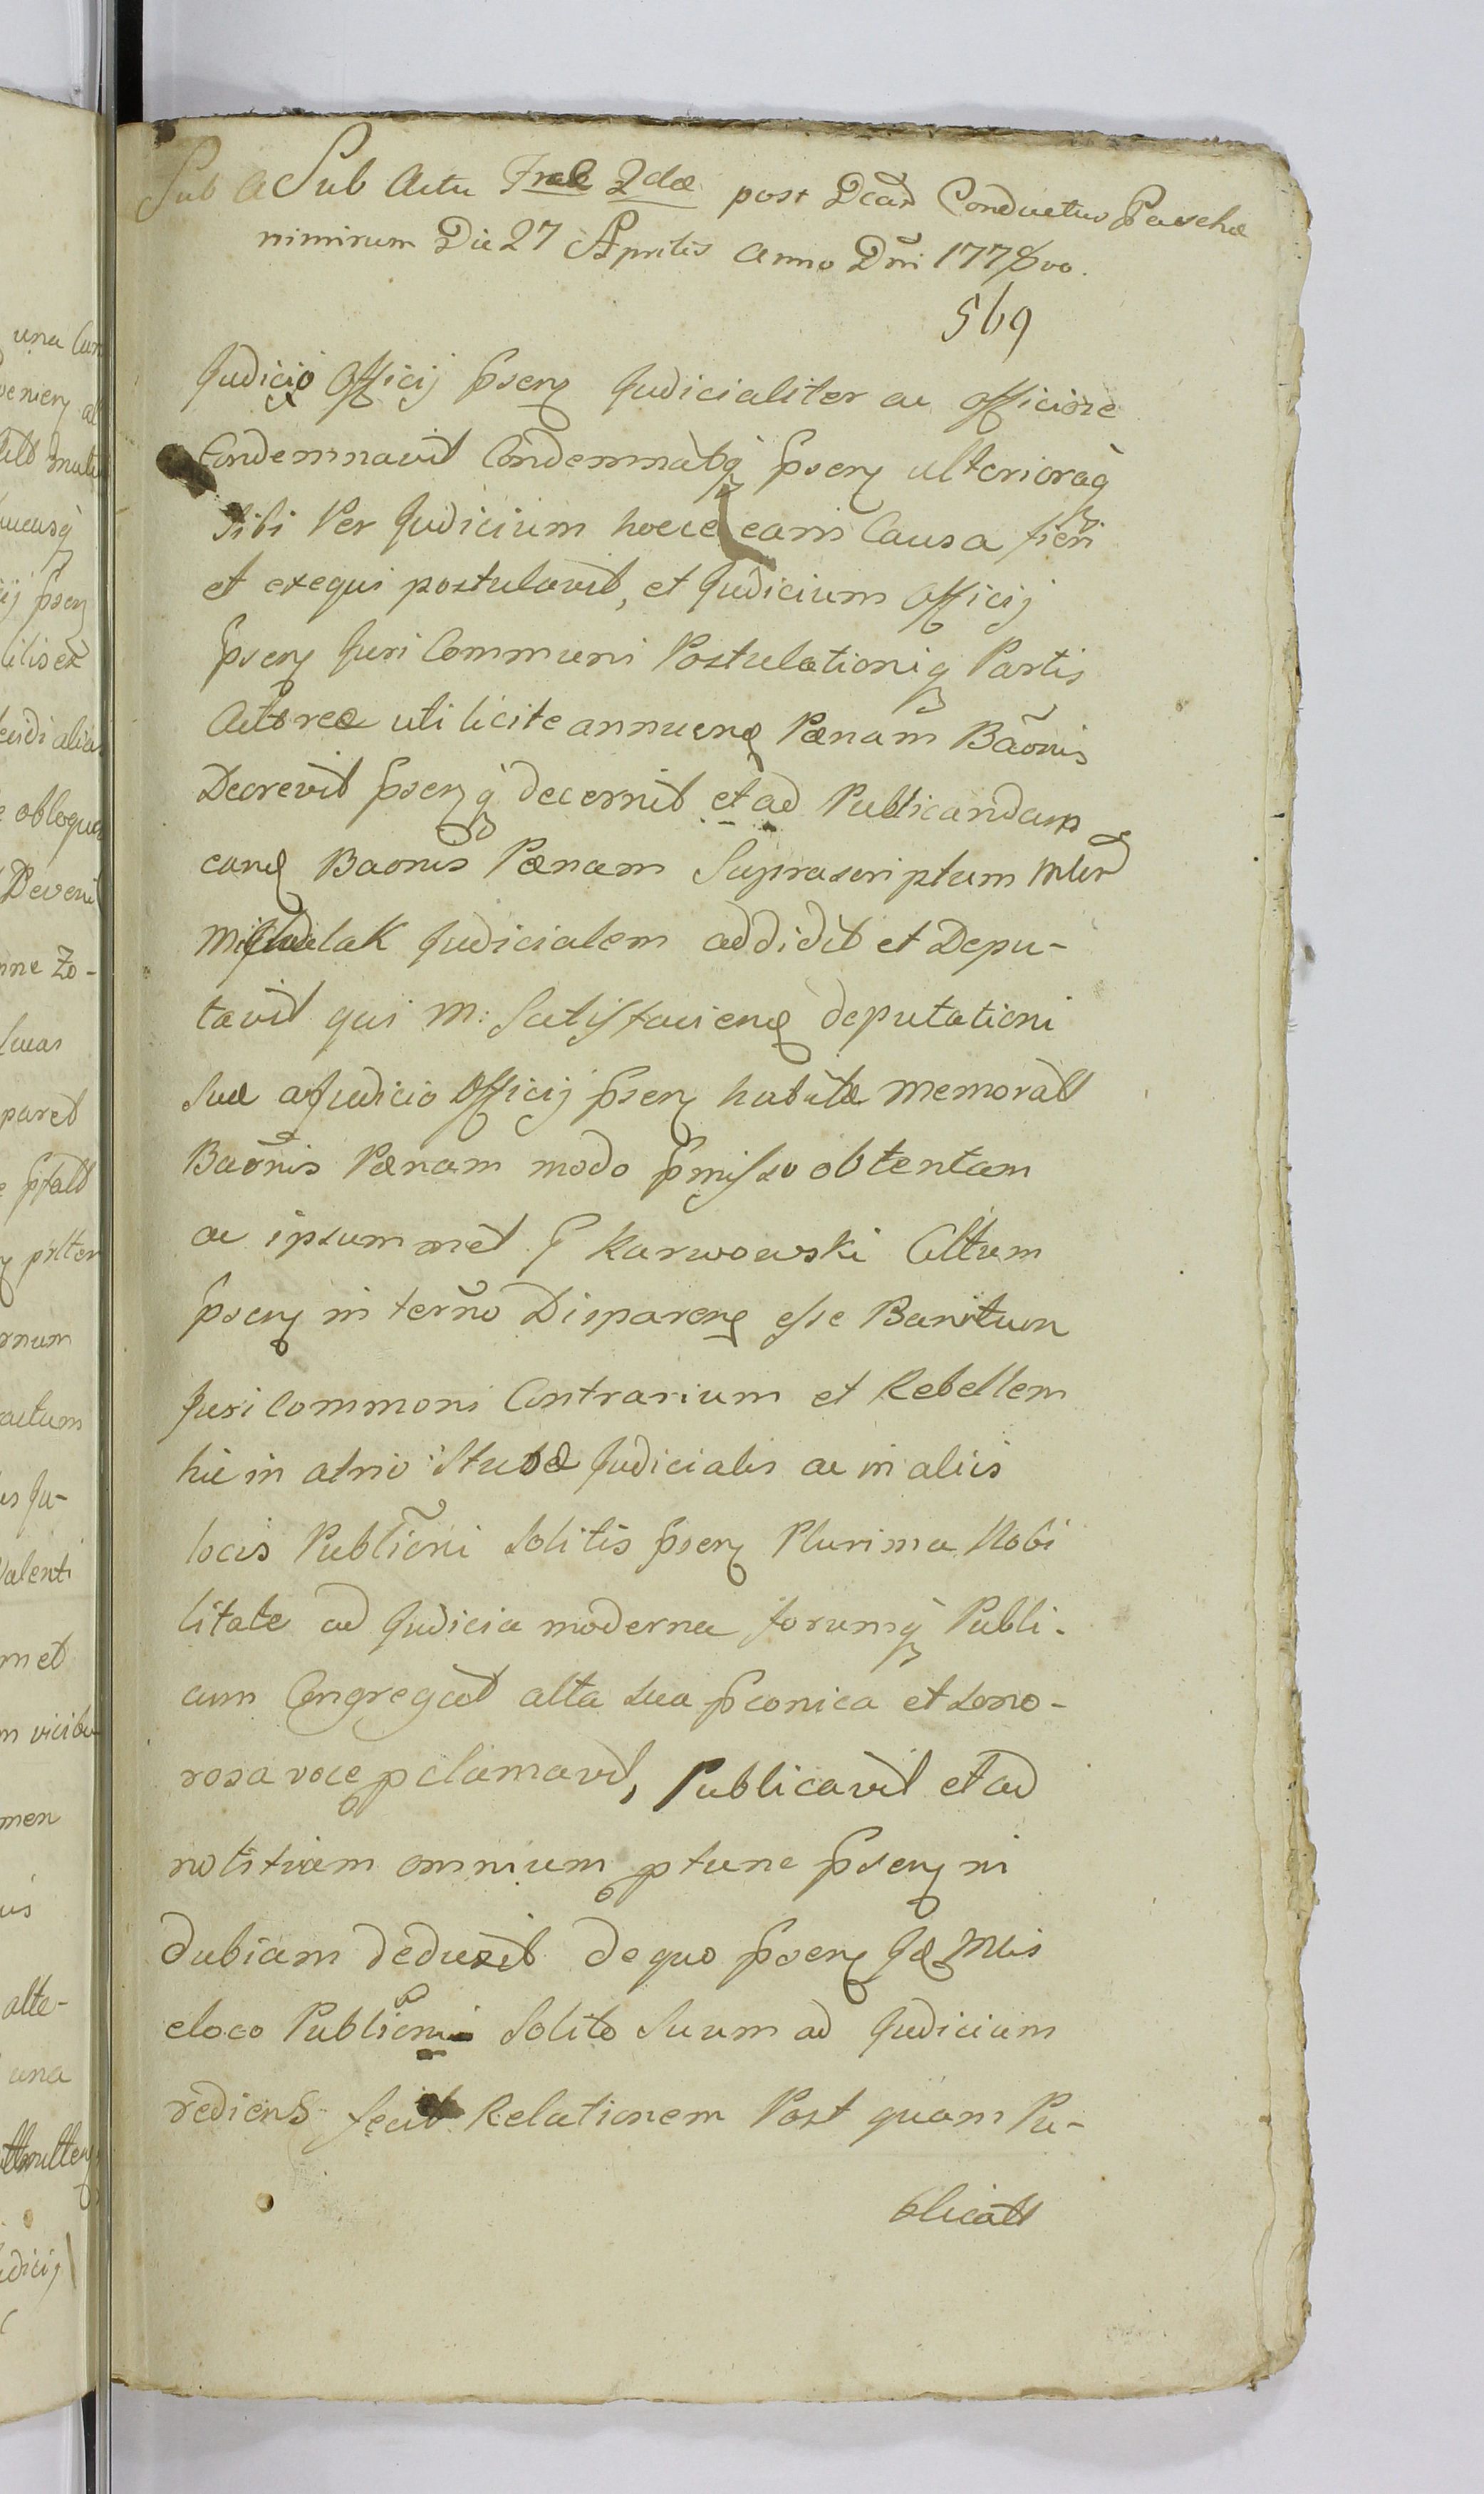 Sub A Sub Actu Frae 2dae post Dcam Conductus Paschae
nimirum Die 27 Aprilis Anno Dni 1778vo.
569
Judicio Officij pseny Judicialiter ac officiose
Condemnavit Condemnatq pseny ulterioraq
sibi Per Judicium hocce eam Causa fieri
et exequi postulavit, et Judicium Officij
pseny Juri Communi Postulationiq Partis
Actoreae uti licite annuens Paenam Baonis
Decrevit psenyq decernit et ad Publicandam
eand Baonis Paenam Suprascriptum Mlem
Judicialem addidit et Depu-
tavit qui M: Satisfaciens deputationi
suae a Judicio Officij pseny habitae memorat
Baonis Paenam modo pmisso obtentam
ac ipsummet G Karwowski Citum
pseny in terno Disparens esse Banitum
Juri Commoni Contrarium et Rebellem
hic in atrio Stubae Judicialis ac in aliis
locis Publicni solitis pseny Plurima Nobi
litate ad Judicia moderna forumq Publi-
cum Congregat alta sua pconica et sono-
rosa voce pclamavit, Publicavit et ad
notitiam omnium ptunc pseny in
dubiam deduxit de quo pseny Id Mlis
eloco Publicni Solito Suum ad Judicium
rediens fecit Relationem Post quam Pu-
blicatt
una Cum
veniens
mutu
pseny
alias
obloquen
Deveni
nne Zo-
suas
paret
pfatt
pltter
rnum
actum
es Ju-
valenti
met
m vicibu
men
us
alte-
una
udicij